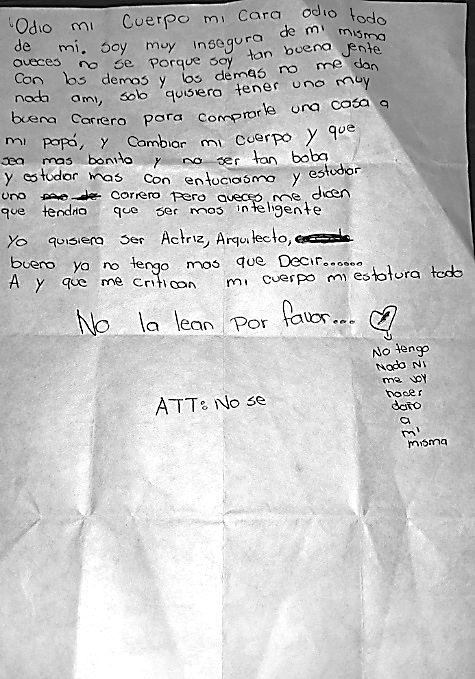 "Odio mi Cuerpo mi Cara odio todo
de mi. soy muy insegura de mi misma
aveces no se porque soy tan buena jente
Con los demas y los demas no me dan
nada ami, solo quisiera tener una muy
buena Carrera para comprarle una casa a
mi papá, y Cambiar mi Cuerpo y que
sea mas bonito y no ser tan boba
y estudar mas con entuciasmo y estudiar
una carrera pero aveces me dicen
que tendria que ser mas inteligente
Yo quisiera ser Actriz, Arquitecto,
bueno ya no tengo mas que Decir......
A y que me critican mi cuerpo mi estatura todo
No la lean por favor...
No tengo
Nada Ni
me voy
hacer
daño
a
mi
misma
ATT: No se